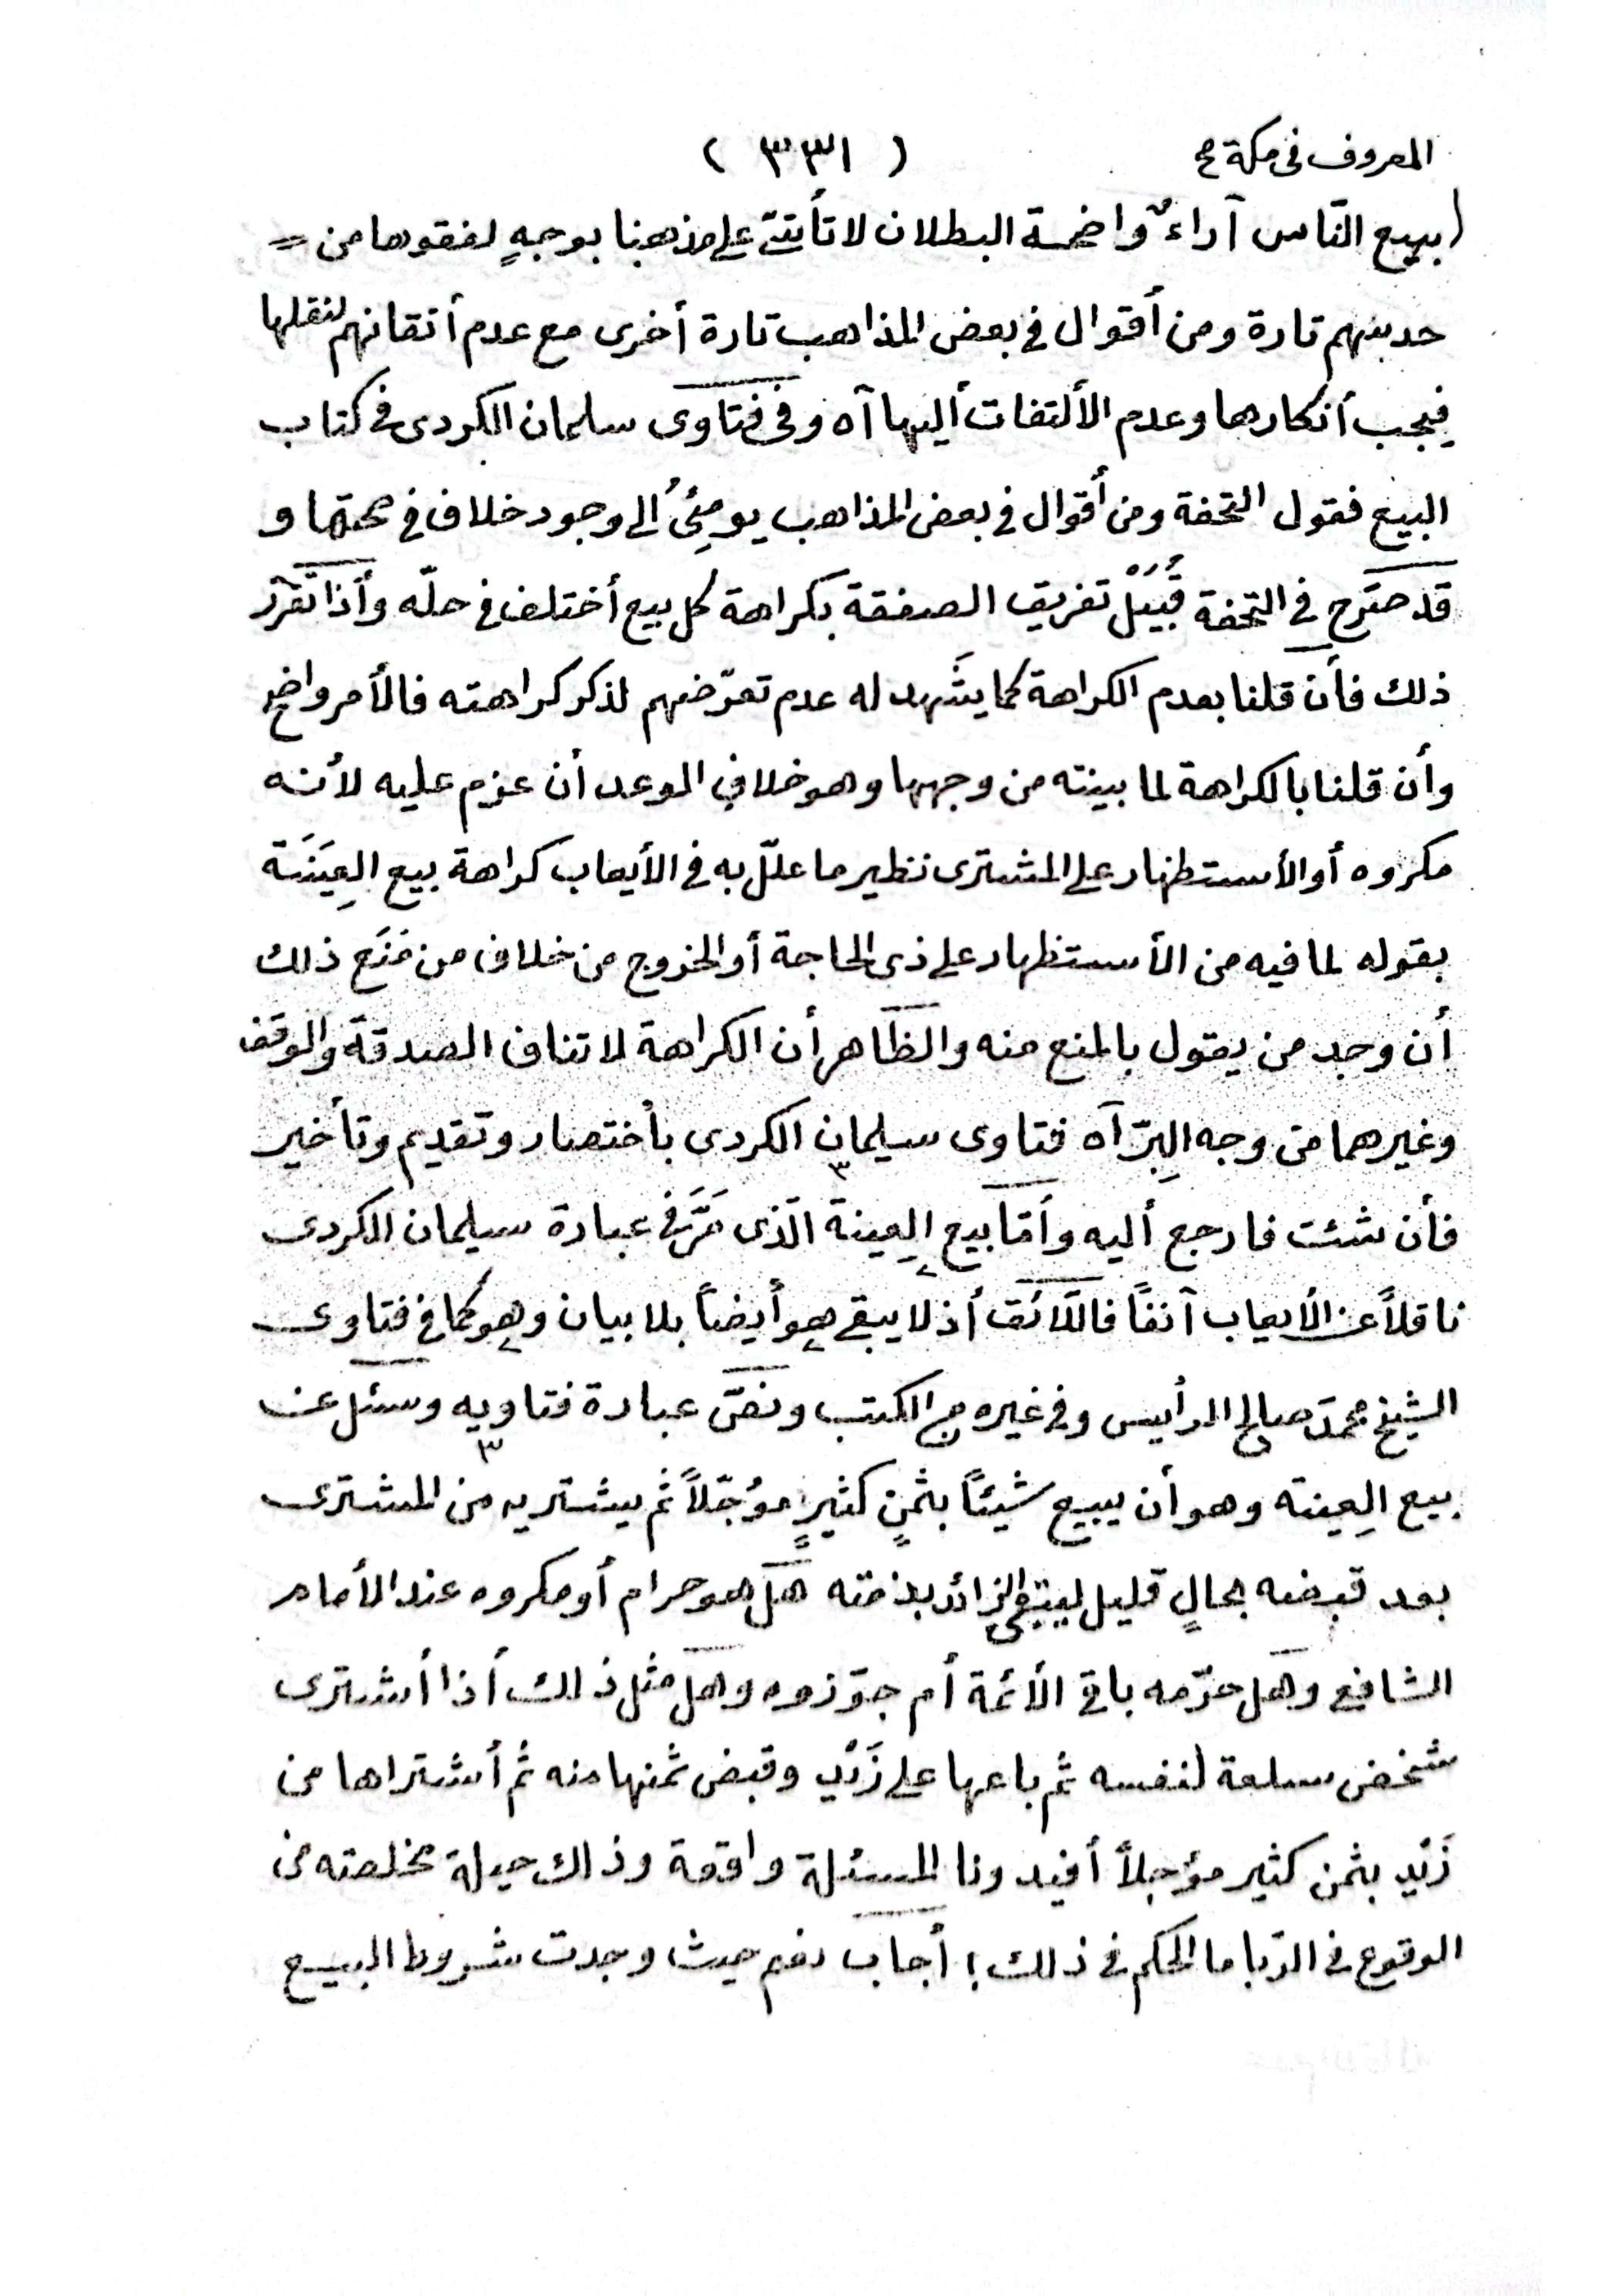 المعروف فى مكة ( ٣٣١ )
(ببيع النّاس آراءٌ واضحة البطلان لا تأتىّ على مذهبنا بوجهٍ لفقوها من
حدسهم تارة ومن أقوال فى بعض المذاهب تارة أخرى مع عدم أتقانهم لنقلها
فيجب أنكارها وعدم الألتفات أليها آه وفى فتاوى سلمان الكردى فى كتاب
البيع فقول التحفة ومن أقوال فى بعض المذاهب يومِئُ ألى وجود خلاف فى صحتها و
قد صَرّح فى التحفة قُبَيْلَ تفريق الصفقة بكراهة كل بيع أختلف فى حلّه وأذا تقرّر
ذلك فأن قلنا بعدم الكراهة كما يشَهد له عدم تعرّضهم لذكر كراهته فالأمر واضح
وأن قلنا بالكراهة لما بينته من وجهها وهو خلاف الوعد أن عزم عليه لأنه
مكروه أو الأستظهار على المشترى نظير ما علّل به فى الأيعاب كراهة بيع العِينَة
بقوله لما فيه من الأستظهار على ذى الحاجة أو الخروج من خلاف من مَنَع ذلك
أن وجد من يقول بالمنع منه والظّاهر أن الكراهة لا تنافى الصدقة والوقف
وغيرهما من وجه البِرّ آه فتاوى سيلمان الكردى بأختصار وتقديم وتأخير
فأن شئت فارجع أليه وأمّا بيع العِينة الّذى مَرَّ فى عبارة سيلمان الكردى
ناقلاً عن الأيعاب آنفاً فاللّائق أذ لا يبقى هو أيضاً بلا بيان وهو كما فى فتاوى
الشيخ محمد صالح الرأيس وفى غيره من الكتب ونصّ عبارة فتاويه وسئل عن
بيع العِينة وهو أن يبيع شيئاً بثمنٍ كثيرٍ مؤجّلاً ثم يشتريه من المشترى
بعد قبضه بحالٍ قليل ليبقى الزائد بذمته هل هو حرام أو مكروه عند الأمام
الشافعى وهل حرّمه باقى الأئمة أم جوّزوه وهل مثل ذلك أذا أشترى
شخص سلعة لنفسه ثم باعها على زَيْد وقبض ثمنها منه ثم أشتراها من
زَيْد بثمن كثير مؤجلاً أفيدونا المسئلة واقعة وذلك حيلة مخلصته من
الوقوع فى الرّبا ما الحكم فى ذلك؛ أجاب نعم حيث وجدت شروط البيع